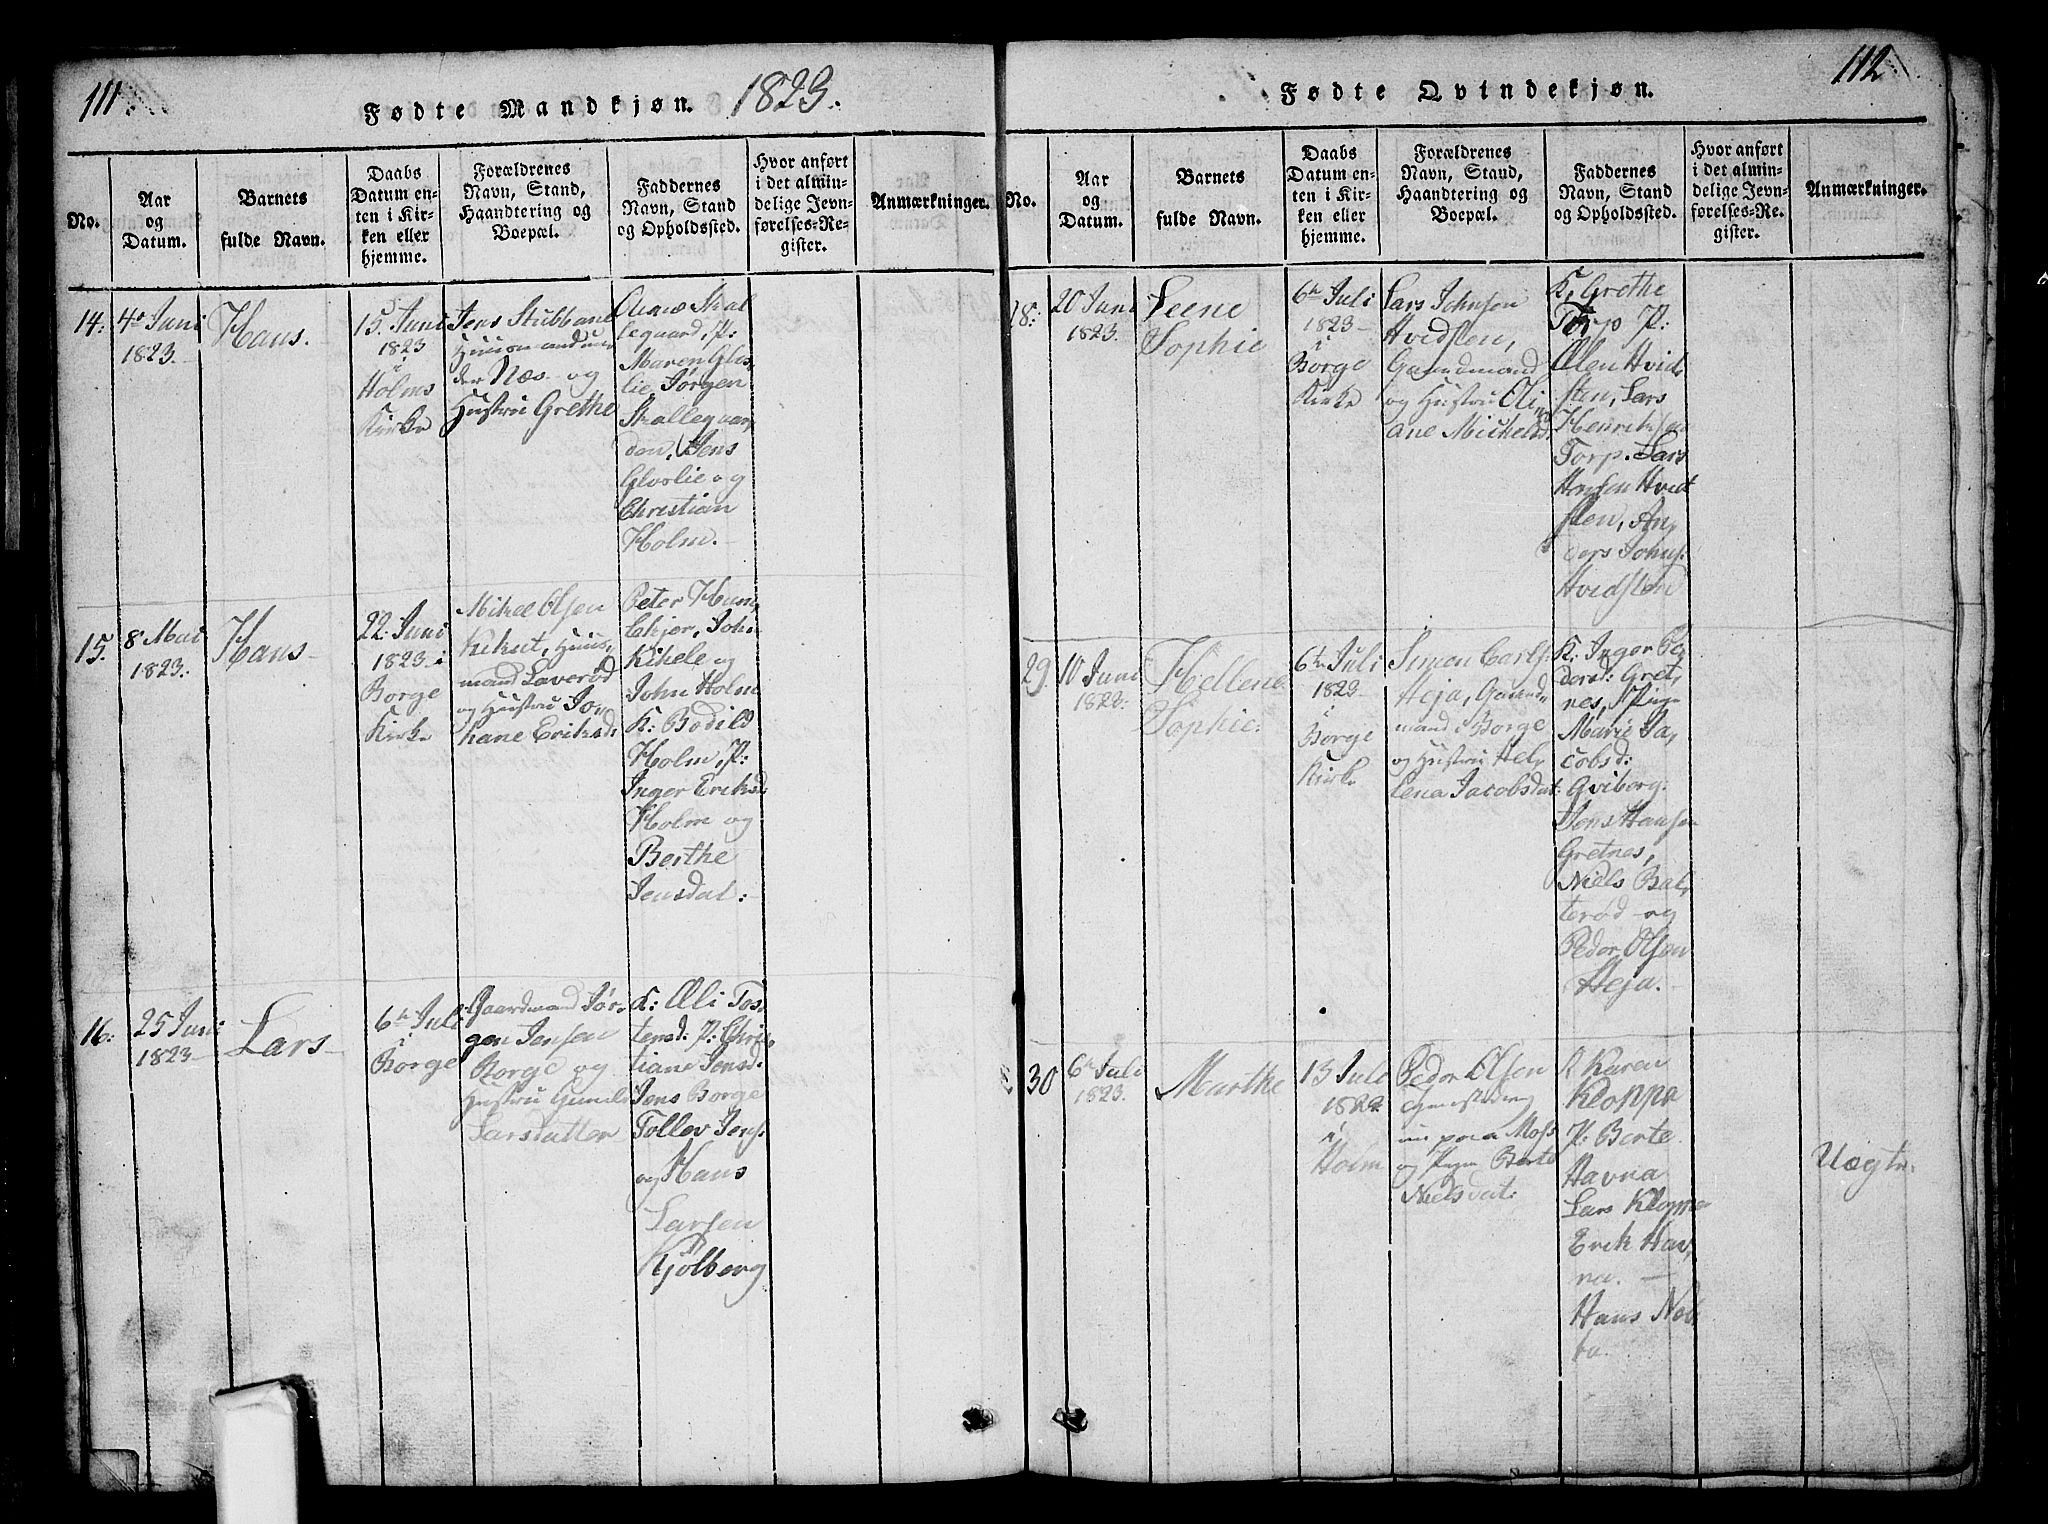 111.
Fødte Mandkjøn. 1823.
No.
Aar
og
Datum.
Barnets
fulde Navn.
Daabs
Datum en-
ten i Kir-
ken eller
hjemme.
Forældrenes
Navn, Stand,
Haandtering og
Boepæl.
Faddernes
Navn, Stand
og Opholdssted.
Hvor anført
i det almin-
delige Jevn-
førelses-Re-
gister.
Anmærkninger.
14.
4de Juni
1823.
Hans.
15 Juni
1823
i
Holms
Kirke
Jens Stubbane
Huusmand un-
der Næs og
Hustru Grethe
Skal
legaard, P:
Maren Glos
lie, Jørgen
Skallegaar
den, Jens
Gloslie og
Christian
Holm.
15.
8de Mai
1823.
Hans
22. Juni
1823. i
Borge
Kirke
Mikel Olsen
Kikut, Huus,
mand Laverød
og Hustru Jo,
hane Eriksd.
Peter Hun,
John
Kikele og
John Holm
K: Bodild
Holm, P:
Inger Eriksd.
Holm og
Berthe
Jensdat:
16.
25 Juni
1823
Lars
6te Juli
i
Borge
Gaardmand Jør,
gen Jensen
Borge og
Hustru Gunild
Larsdatter
K: Oli Tos
tensd: P: Chris,
tiane Jensd.
Jens Borge
Tollev Jens.
og Hans
Larsen
Kjölberg
112
Fødte Qvindekjøn.
No.
Aar
og
Datum.
Barnets
fulde Navn.
Daabs
Datum en-
ten i Kir-
ken eller
hjemme.
Forældrenes
Navn, Stand,
Haandtering og
Boepæl.
Faddernes
Navn, Stand
og Opholdssted.
Hvor anført
i det almin-
delige Jevn-
førelses-Re-
gister.
Anmærkninger.
28.
20 Juni
1823.
Leene
Sophie
6te Juli
1823
i
Borge
Kirke
Lars Johnsen
Hvidsten,
Gaardmand
og Hustru Oli
ane Michelsd.
K. Grethe
Torp P:
Olen Hvid,
sten, Lars
Henriksen
Torp. Lars
Hansen Hvid
sten, An,
ders Johns.
Hvidsten
29.
10 Juni
1823.
Hellene
Sophie.
6te Juli
1823
i
Borge
Kirke
Simen Carls.
Heja, Gaard,
mand i Borge
og Hustru Hel,
lena Jacobsdat:
K: Inger Pe,
dersd: Gret,
nes, Pige
Marie Ja,
cobsd:
Gviborg.
Jens Hansen
Gretnes,
Niels Bal,
terød og
Peder Olsen
Heja.
30
6te Juli
1823.
Marthe
13 Juli
1823
i
Holm
Peder Olsen
paa Moss
og Pigen Berte
Nielsdat:
K Karen
Kloppa
P: Berte
Havna
Lars Kloppa
Erik Hav,
na.
Hans Neb
ba.
Uægte.